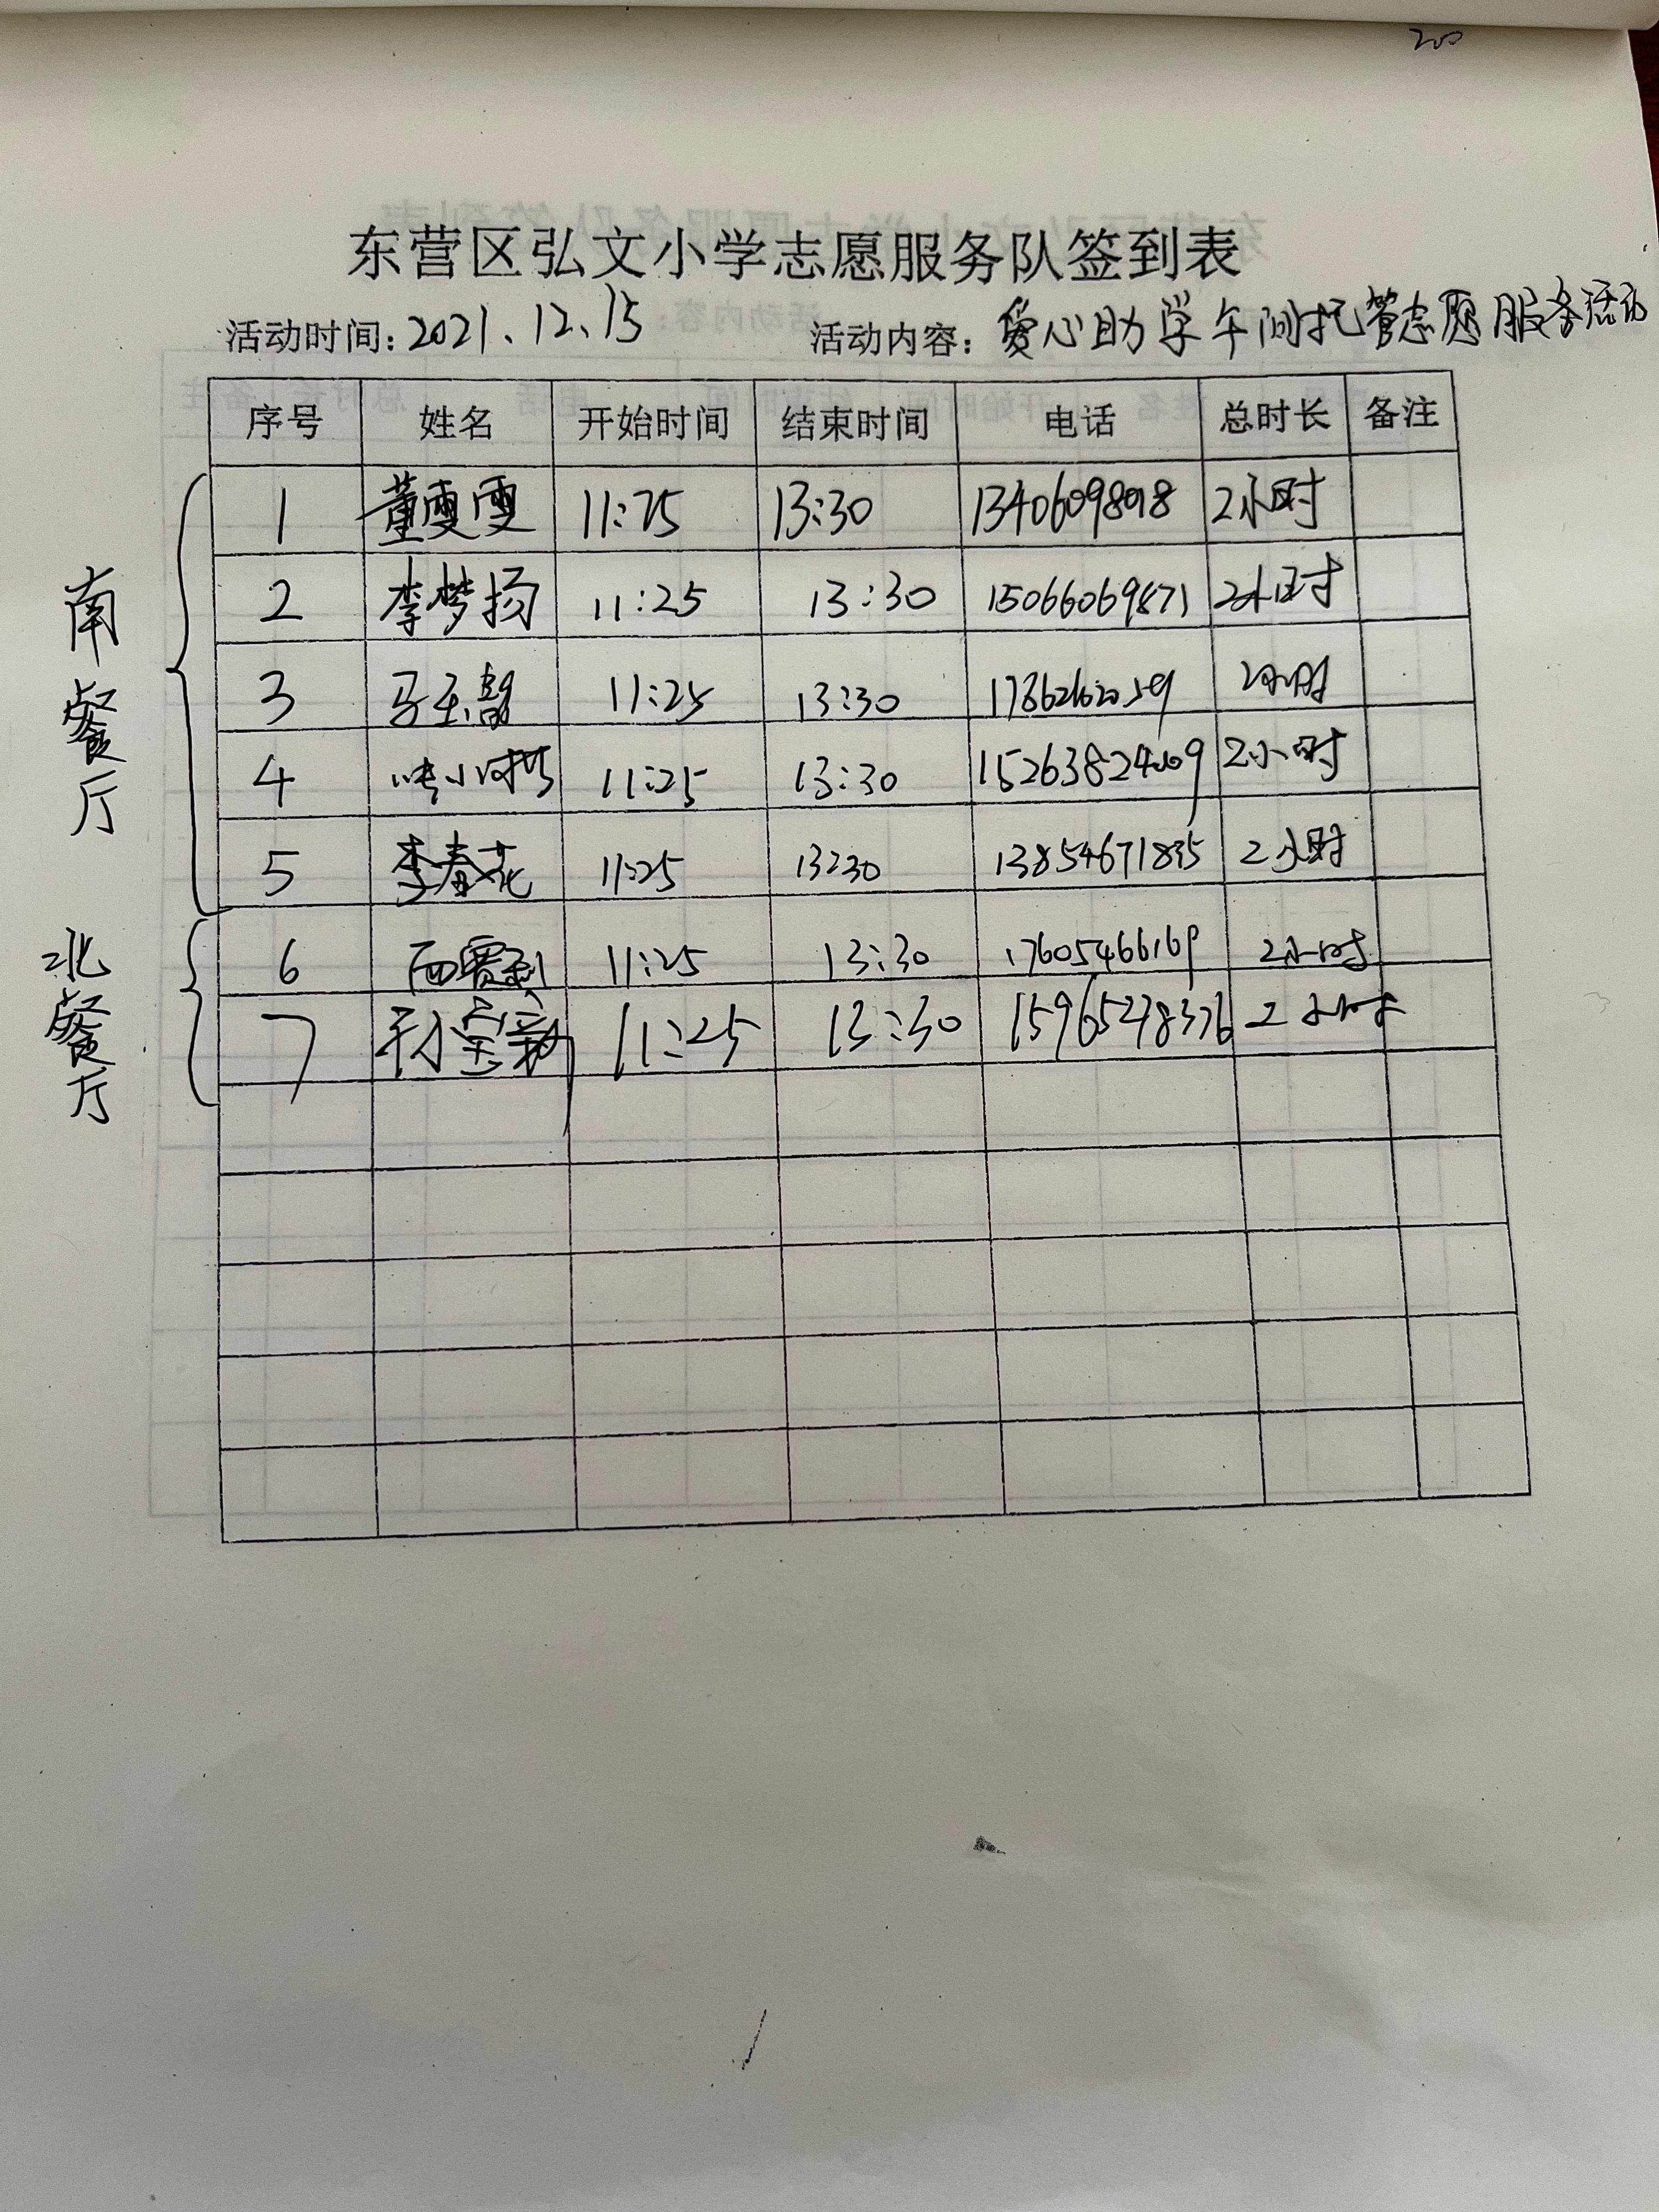 200
东营区弘文小学志愿服务队签到表
活动时间: 2021.12.15 活动内容: 爱心助学午间托管志愿服务活动
序号 姓名 开始时间 结束时间 电话 总时长 备注
南餐厅
1 董雯雯 11:25 13:30 2小时
2 李梦扬 11:25 13:30 15066069871 2小时
3 11:25 13:30 2小时
4 11:25 13:30 2小时
5 李春花 11:25 13:30 13854671835 2小时
北餐厅
6 11:25 13:30 17605466169 2小时
7 11:25 13:30 15965278376 2小时